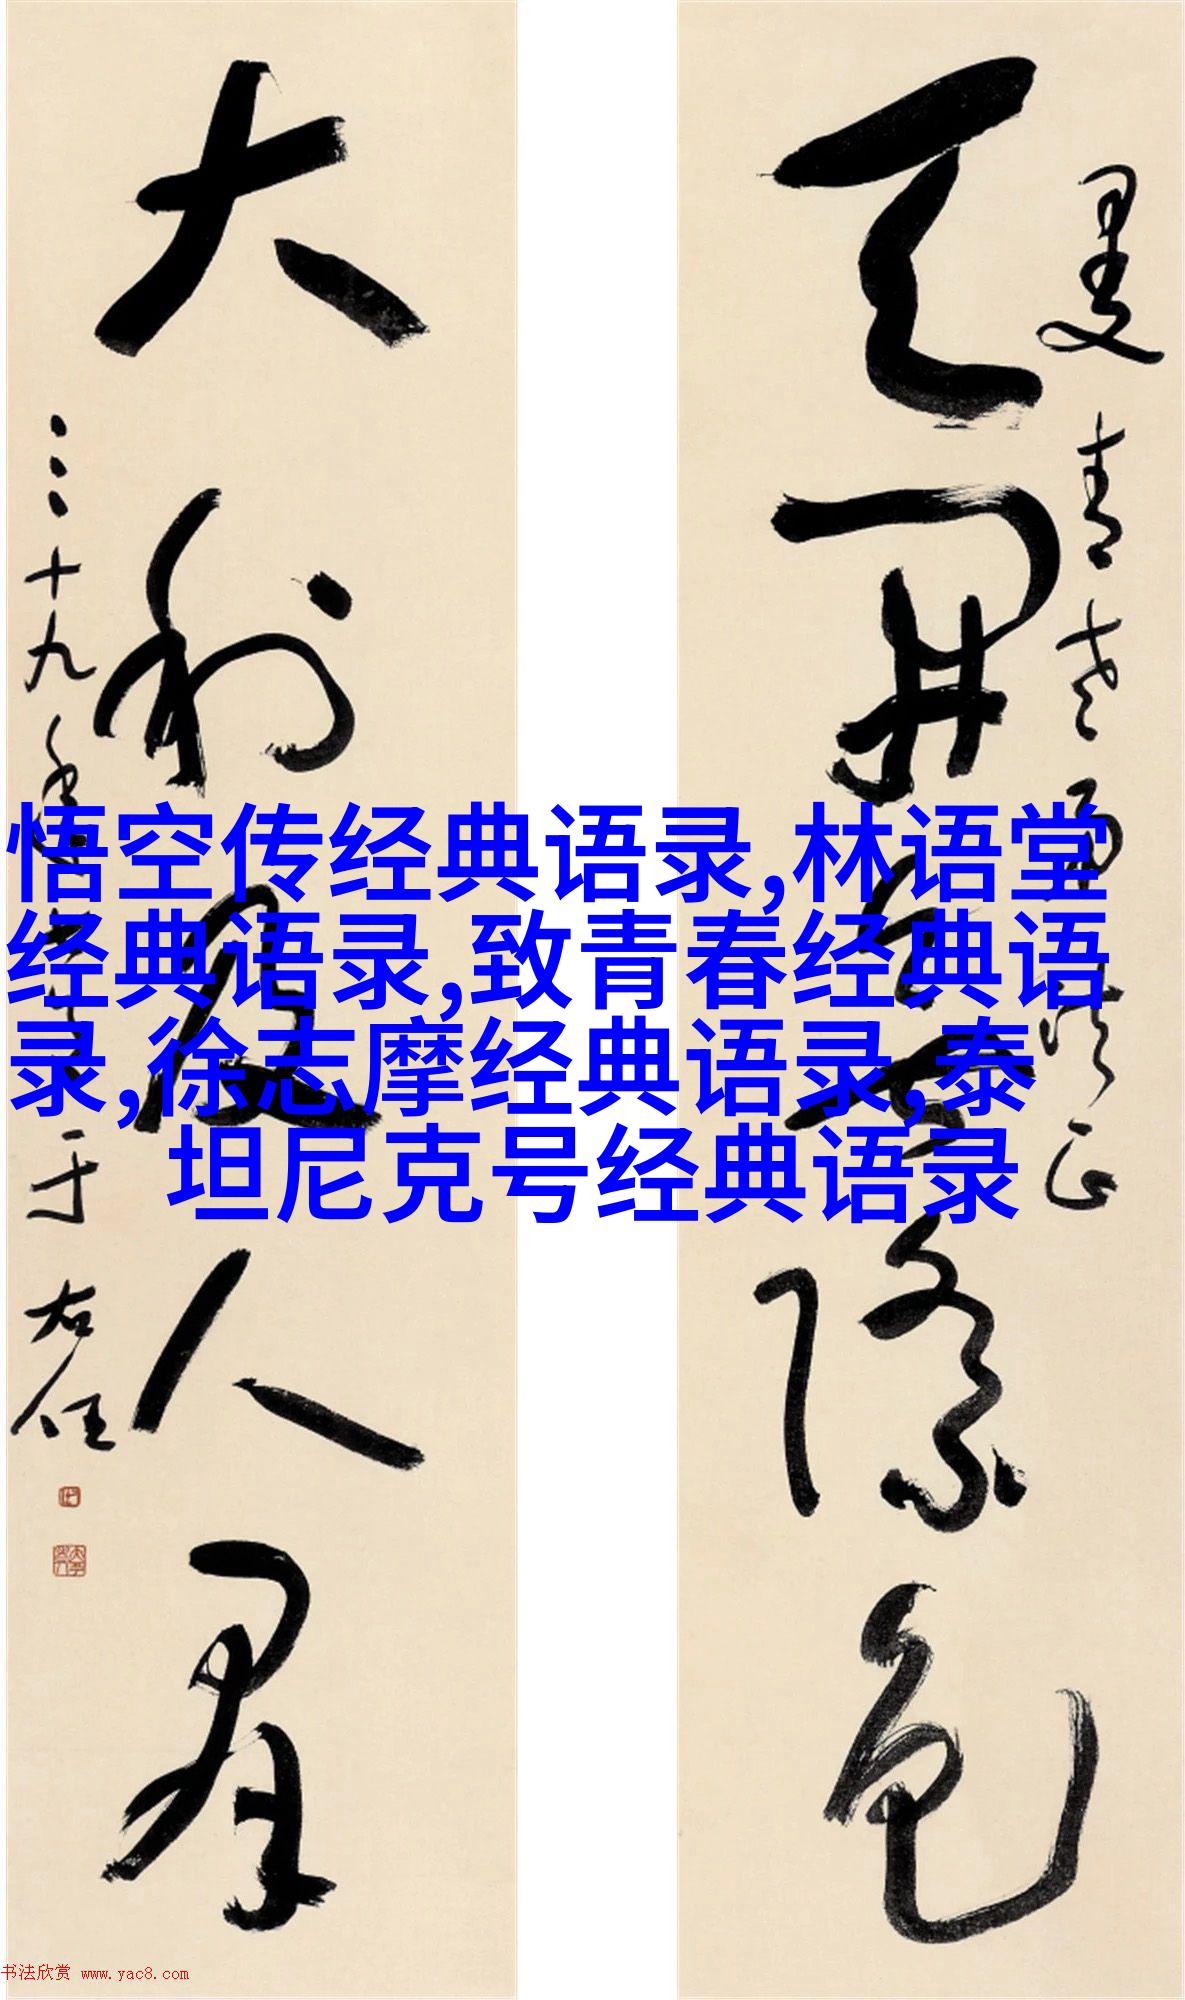 悟空传经典语录,林语堂
经典语录,致青春经典语
录,徐志摩经典语录,泰
坦尼克号经典语录
青老
正
天開雲際色
大利人群
三十九年
于右任
书法欣赏 www.yac8.com